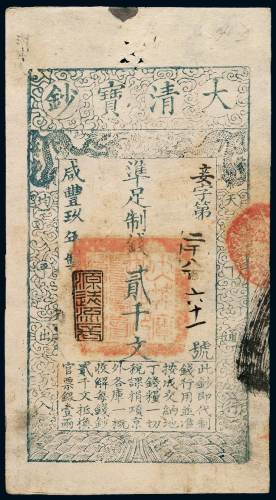 大清寶鈔
天下通行
妾字第二千八百六十一號
準足制錢貳千文
咸豐玖年製
均平出入
此鈔即代制
錢行用並准
按成交納地
丁錢糧一切
稅課捐項京
外各庫一概
收解每錢鈔
貳千文抵換
官票銀壹兩